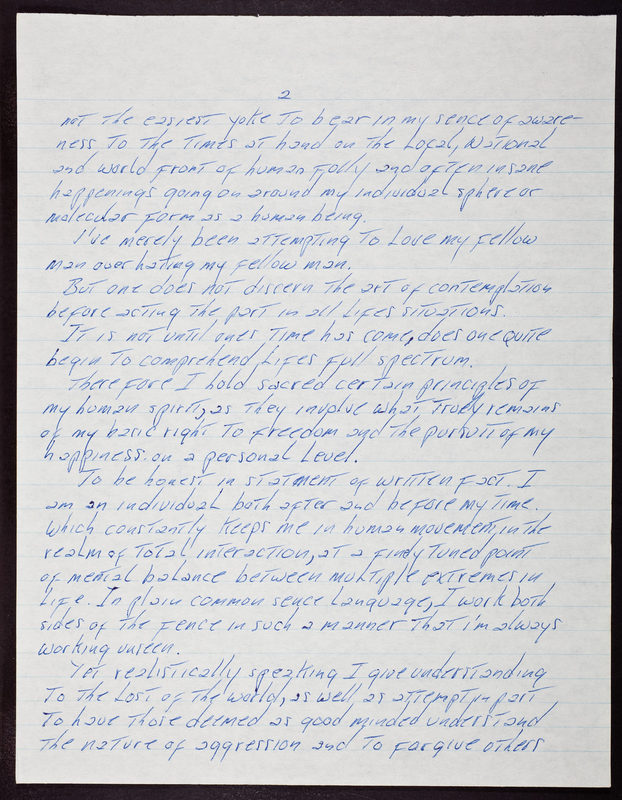 2
not the easiest yoke to bear in my sence of aware-
ness to the times at hand on the Local, National
and world front of human folly and often insane
happenings going on around my individual sphere or
molecular form as a human being.
I've merely been attempting to Love my fellow
man over hating my fellow man.
But one does not discern the art of contemplation
before acting the part in all Lifes situations.
It is not until ones time has come, does one quite
begin to comprehend Lifes full spectrum.
Therefore I hold sacred certain principles of
my human spirit, as they involve what truely remains
of my basic right to freedom and the pursuit of my
happiness on a personal Level.
To be honest in statment of written fact. I
am an individual both after and before my time.
Which constantly keeps me in human movement, in the
realm of total interaction, at a finely tuned point
of mental balance between multiple extremes in
Life. In plain common sence Language, I work both
sides of the fence in such a manner that i'm always
working unseen.
Yet realistically speaking I give understanding
to the Lost of the world, as well as attempt in part
to have those deemed as good minded understand
the nature of aggression and to forgive others